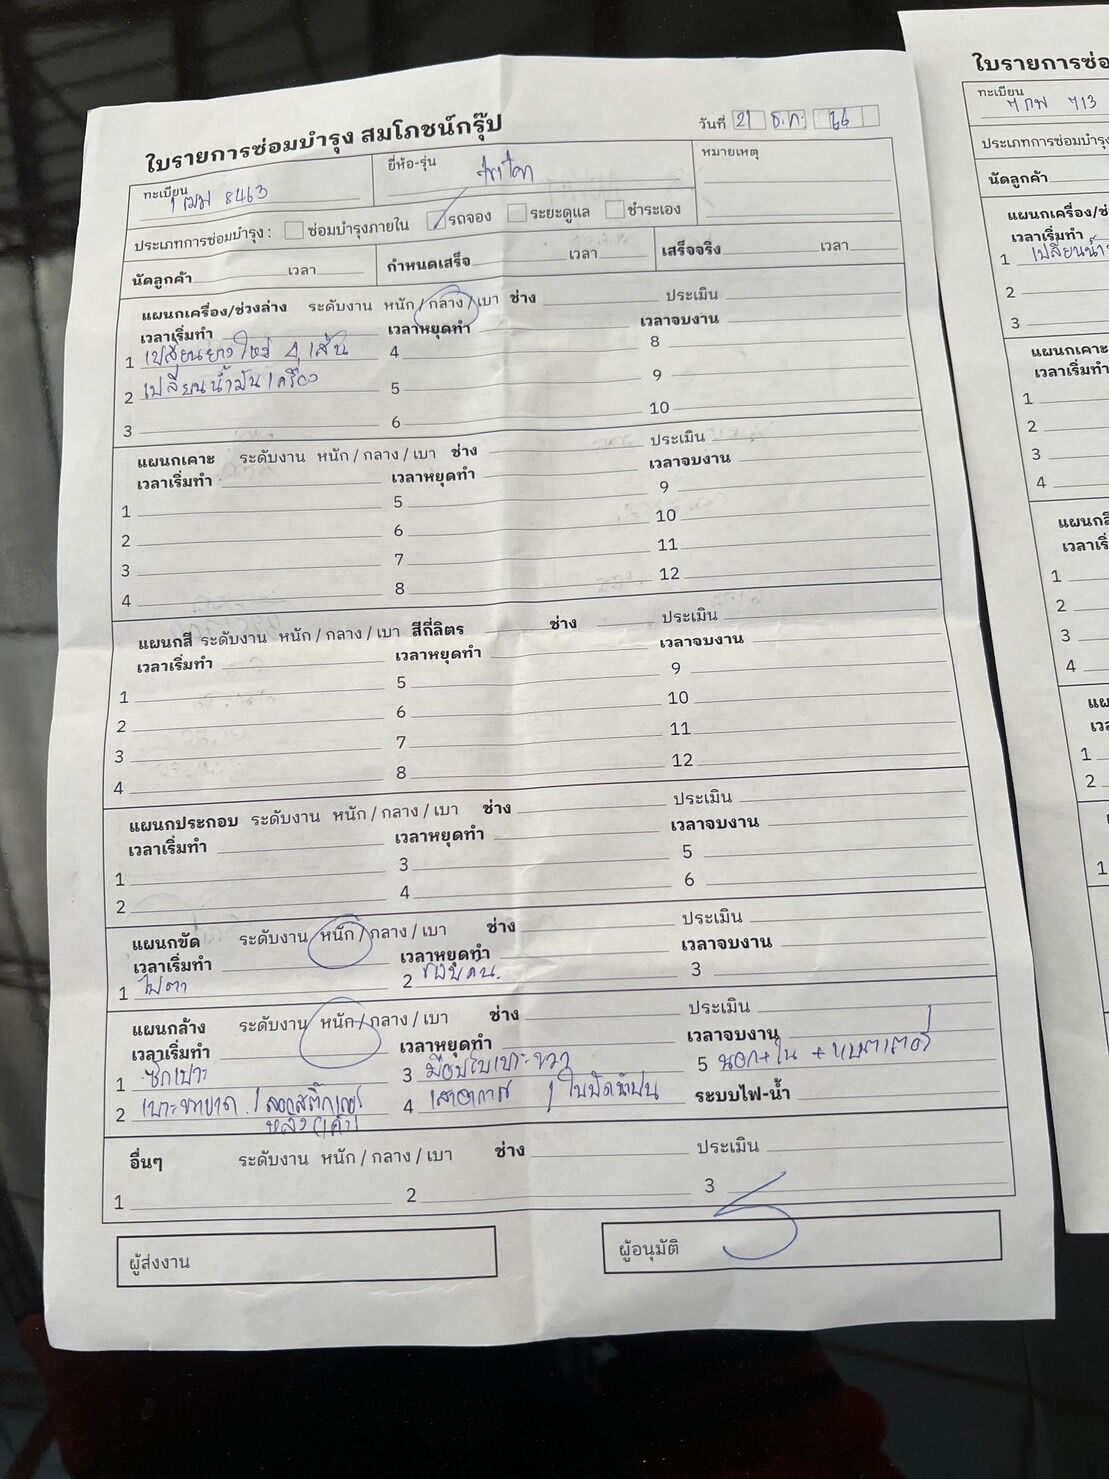 ใบรายการซ่อมบำรุง สมโภชน์กรุ๊ป
วันที่ 21 ธ.ค. 66
ทะเบียน 8463
ยี่ห้อ-รุ่น
หมายเหตุ
ประเภทการซ่อมบำรุง : ซ่อมบำรุงภายใน รถจอง ระยะดูแล ชำระเอง
นัดลูกค้า เวลา กำหนดเสร็จ เวลา เสร็จจริง เวลา
แผนกเครื่อง/ช่วงล่าง ระดับงาน หนัก / กลาง / เบา ช่าง ประเมิน
เวลาเริ่มทำ เวลาหยุดทำ เวลาจบงาน
1 เปลี่ยนยางใหม่ 4 เส้น 4 8
2 เปลี่ยนน้ำมันเครื่อง 5 9
3 6 10
แผนกเคาะ ระดับงาน หนัก / กลาง / เบา ช่าง ประเมิน
เวลาเริ่มทำ เวลาหยุดทำ เวลาจบงาน
1 5 9
2 6 10
3 7 11
4 8 12
แผนกสี ระดับงาน หนัก / กลาง / เบา สีกี่ลิตร ช่าง ประเมิน
เวลาเริ่มทำ เวลาหยุดทำ เวลาจบงาน
1 5 9
2 6 10
3 7 11
4 8 12
แผนกประกอบ ระดับงาน หนัก / กลาง / เบา ช่าง ประเมิน
เวลาเริ่มทำ เวลาหยุดทำ เวลาจบงาน
1 3 5
2 4 6
แผนกขัด ระดับงาน หนัก / กลาง / เบา ช่าง ประเมิน
เวลาเริ่มทำ เวลาหยุดทำ เวลาจบงาน
1 ไฟตา 2 รอบคัน. 3
แผนกล้าง ระดับงาน หนัก / กลาง / เบา ช่าง ประเมิน
เวลาเริ่มทำ เวลาหยุดทำ เวลาจบงาน
1 ซักเบาะ 3 5 นอก+ใน + แบตเตอรี่
2 เบาะขาด / ลอกสติ๊กเกอร์ 4 เสาอากาศ / ใบปัดน้ำฝน ระบบไฟ-น้ำ
อื่นๆ ระดับงาน หนัก / กลาง / เบา ช่าง ประเมิน
1 2 3
ผู้ส่งงาน
ผู้อนุมัติ
ใบรายการซ่อ
ทะเบียน 713
ประเภทการซ่อมบำรุง
นัดลูกค้า
แผนกเครื่อง/ช่
เวลาเริ่มทำ
1 เปลี่ยนน้ำ
2
3
แผนกเคาะ
เวลาเริ่มทำ
1
2
3
4
แผนกสี
เวลาเริ่
1
2
3
4
แผ
เวลา
1
2
1